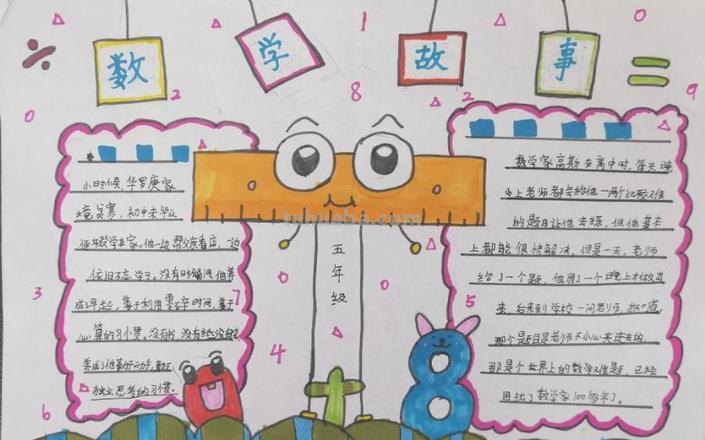 数 学 故 事
÷
=
1
0
2
8
2
9
0
小时候,华罗庚家
境贫寒,初中未毕业
便
在家。他一边帮父亲看店,一边
依旧不忘学习。没有时间,他养
成早起,善于利用零碎时间,善于
心算的习惯。没有书,没有纸
养成了他勤于动手,勤于
独立思考的习惯。
五年级
0
0
0
0
3
7
4
6
5
8
数学家高斯在高中时,每天晚
上老师都会给他一两个比较难
的题目让他去练,但他基本
上都能很快解决,但是一天,老师
给了一个题,他用了一个晚上才做出
来,后来到学校一问老师,才知道,
那个题目是老师不小心夹进去的,
那是个世界上的数学难题,已经
困扰了数学家100多年了。
tuhuaba.com